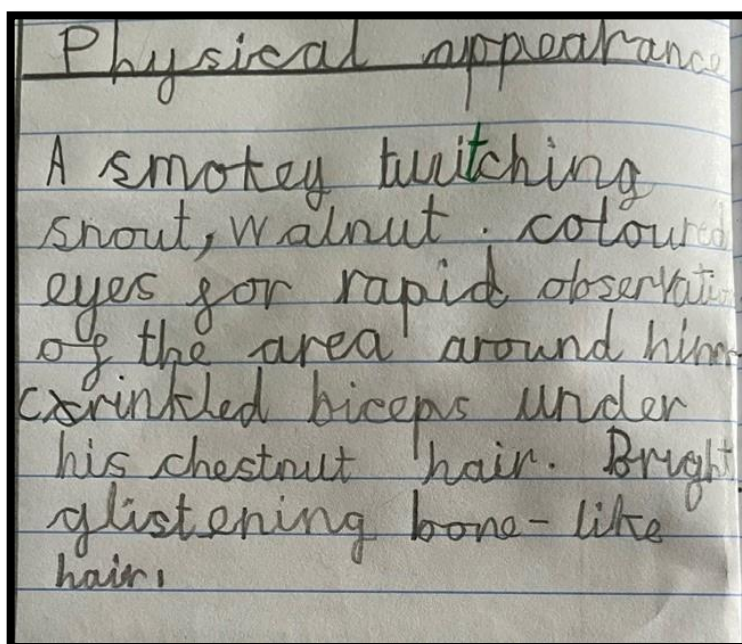 Physical appearance
A smokey twitching
snout, walnut . coloured
eyes for rapid observation
of the area around him
crinkled biceps under
his chestnut hair. Bright
glistening bone-like
hair.